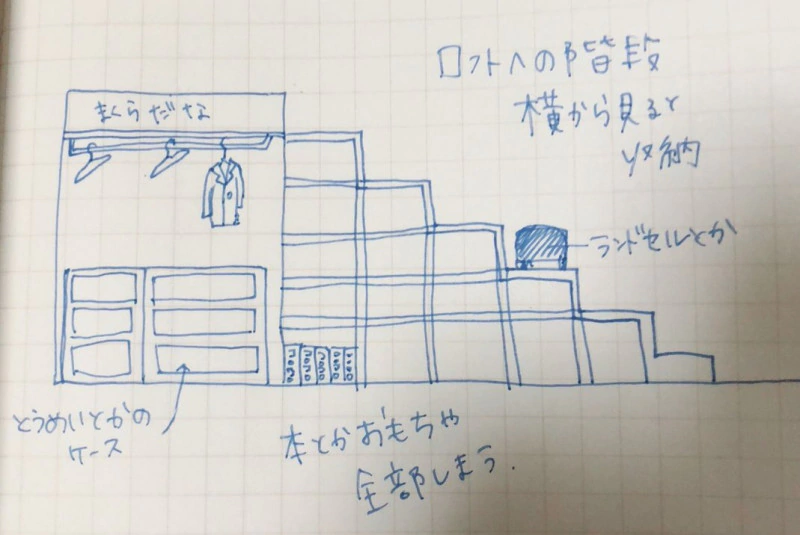 ロフトへの階段
横から見ると
収納
まくらだな
ランドセルとか
とうめいとかの
ケース
本とかおもちゃ
全部しまう.